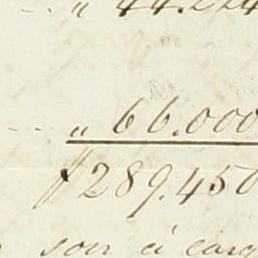 " 44.224
" 66.000
$289.450
son á carg